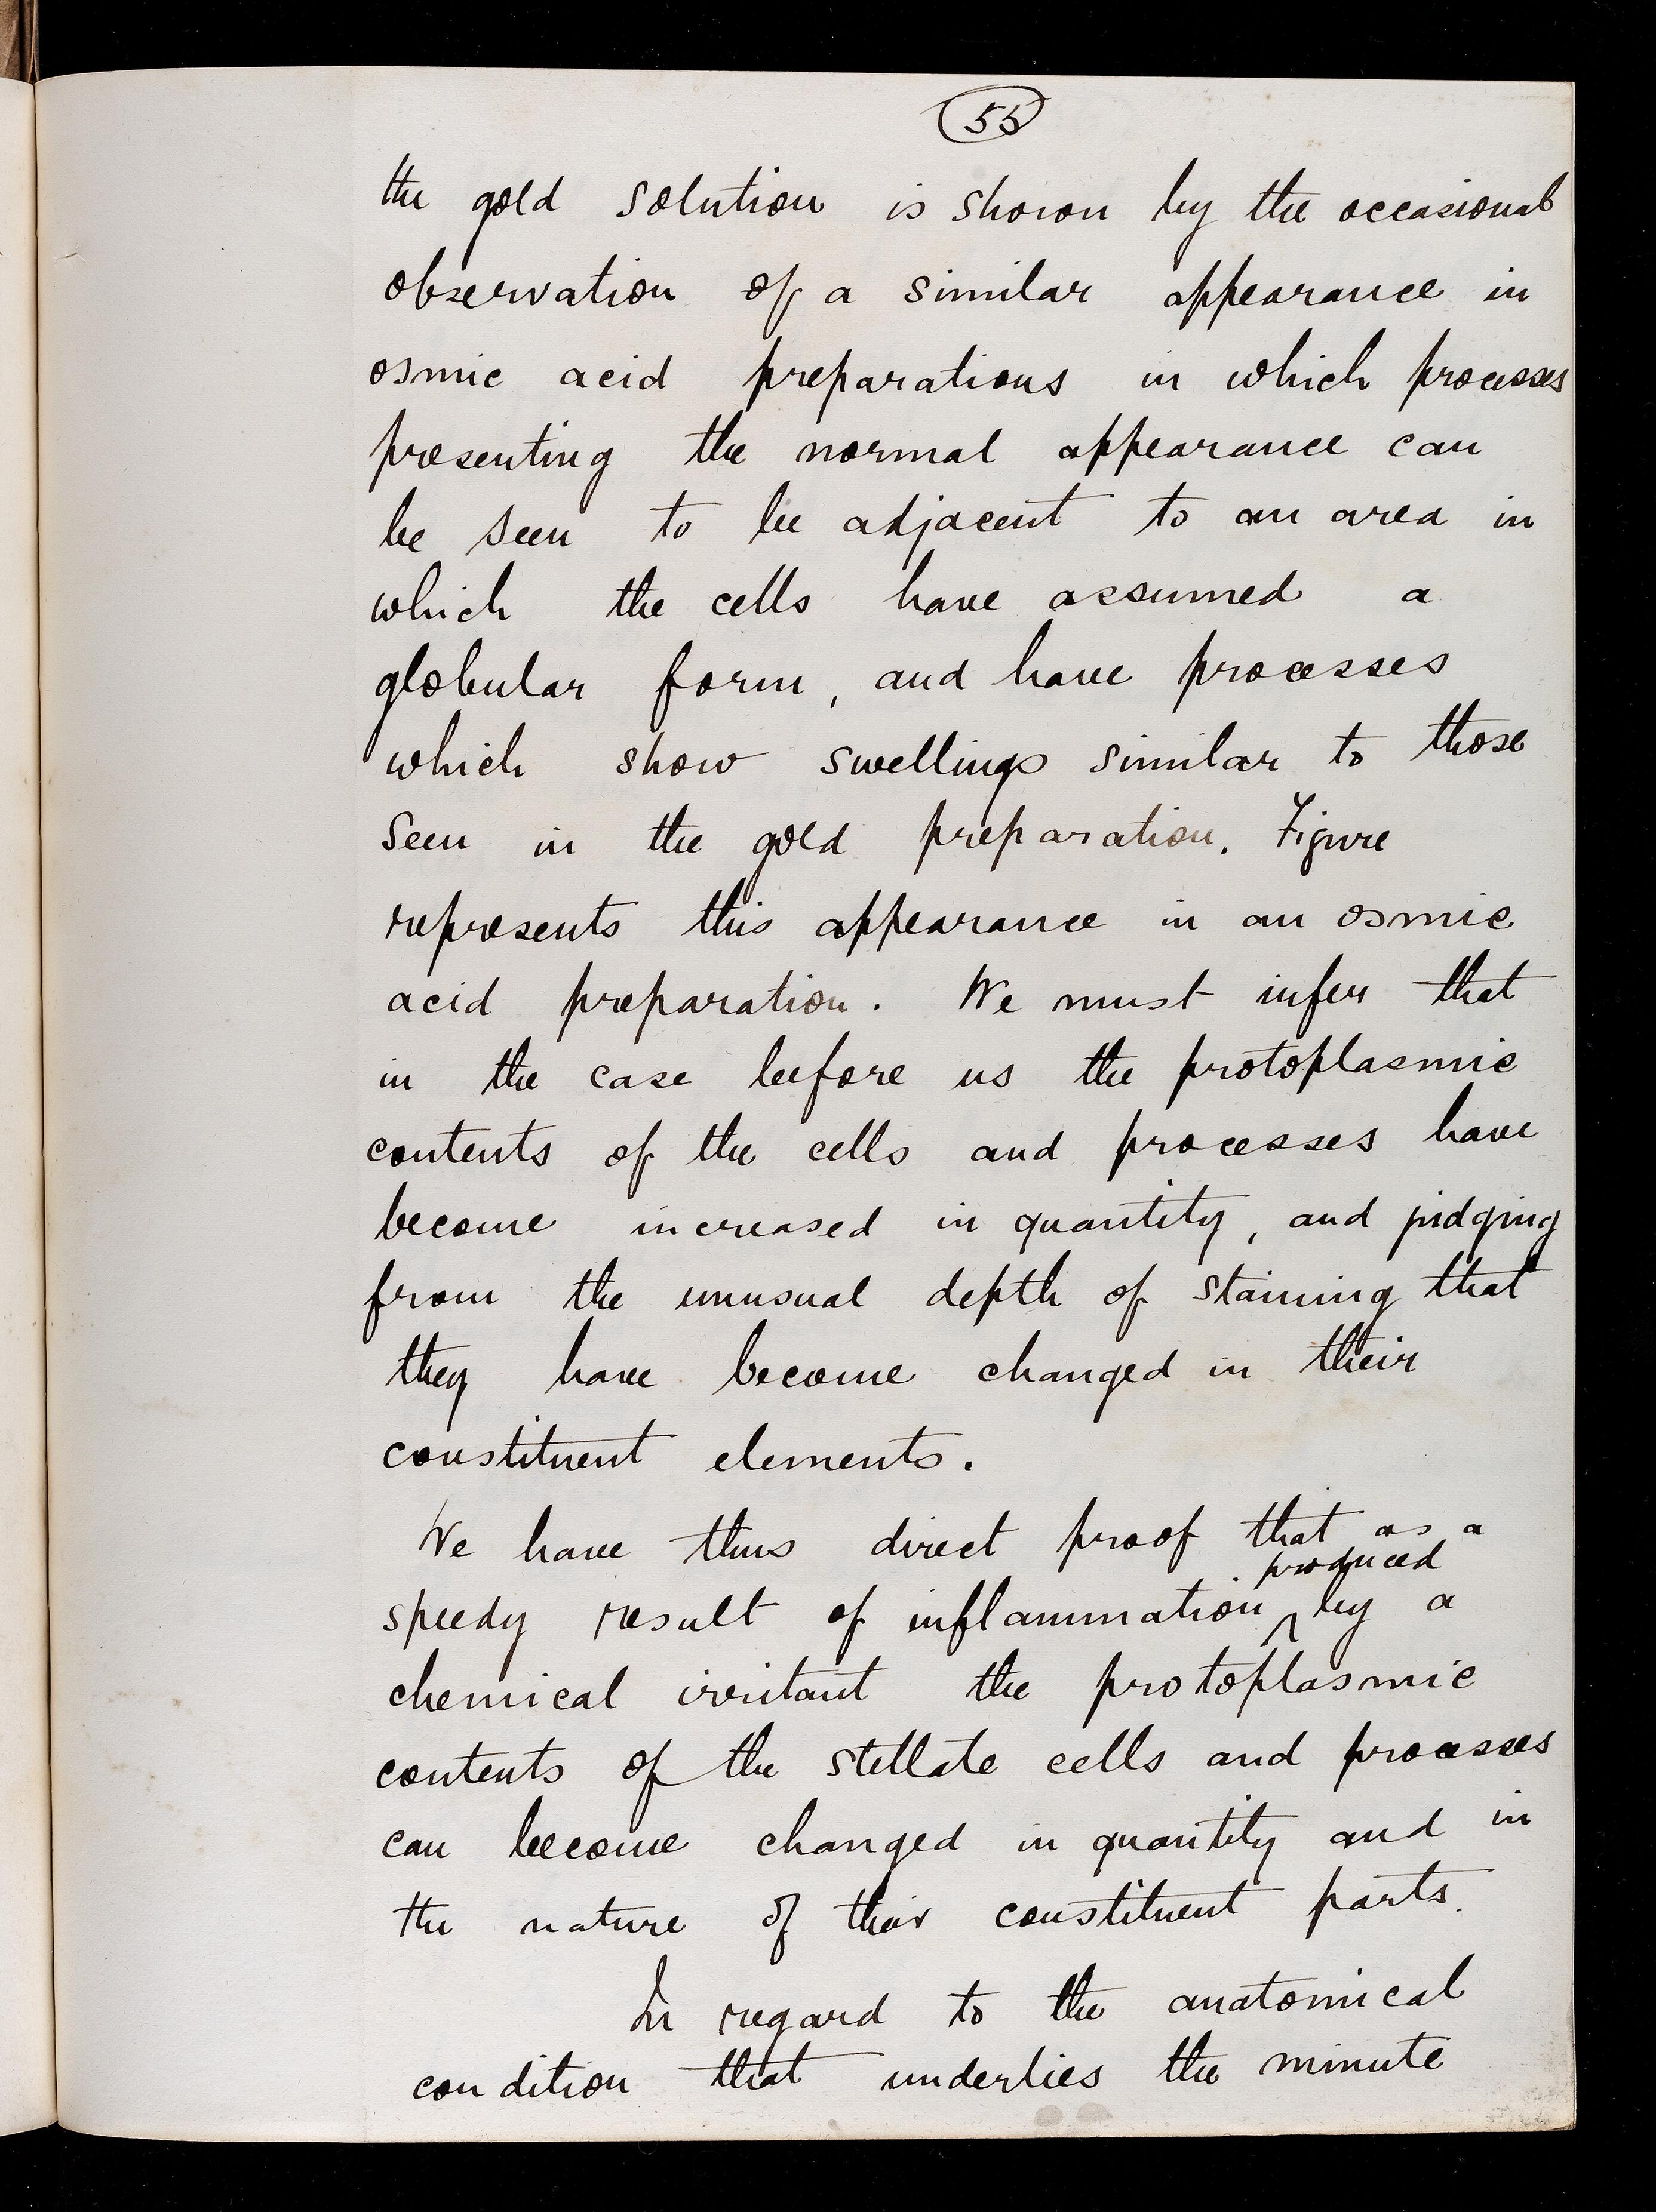 55
the gold solution is shown by the occasional
observation of a similar appearance in
osmic acid preparations in which processes
presenting the normal appearance can
be seen to be adjacent to an area in
which the cells have assumed a
globular form, and have processes
which show swellings similar to those
seen in the gold preparation. Figure
represents this appearance in an osmic
acid preparation. We must infer that
in the case before us the protoplasmic
contents of the cells and processes have
become increased in quantity, and judging
from the unusual depth of staining that
they have become changed in their
constituent elements.
We have thus direct proof that as a
produced
speedy result of inflammation ^ by a
chemical irritant the protoplasmic
contents of the stellate cells and processes
can become changed in quantity and in
the nature of their constituent parts.
In regard to the anatomical
condition that underlies the minute